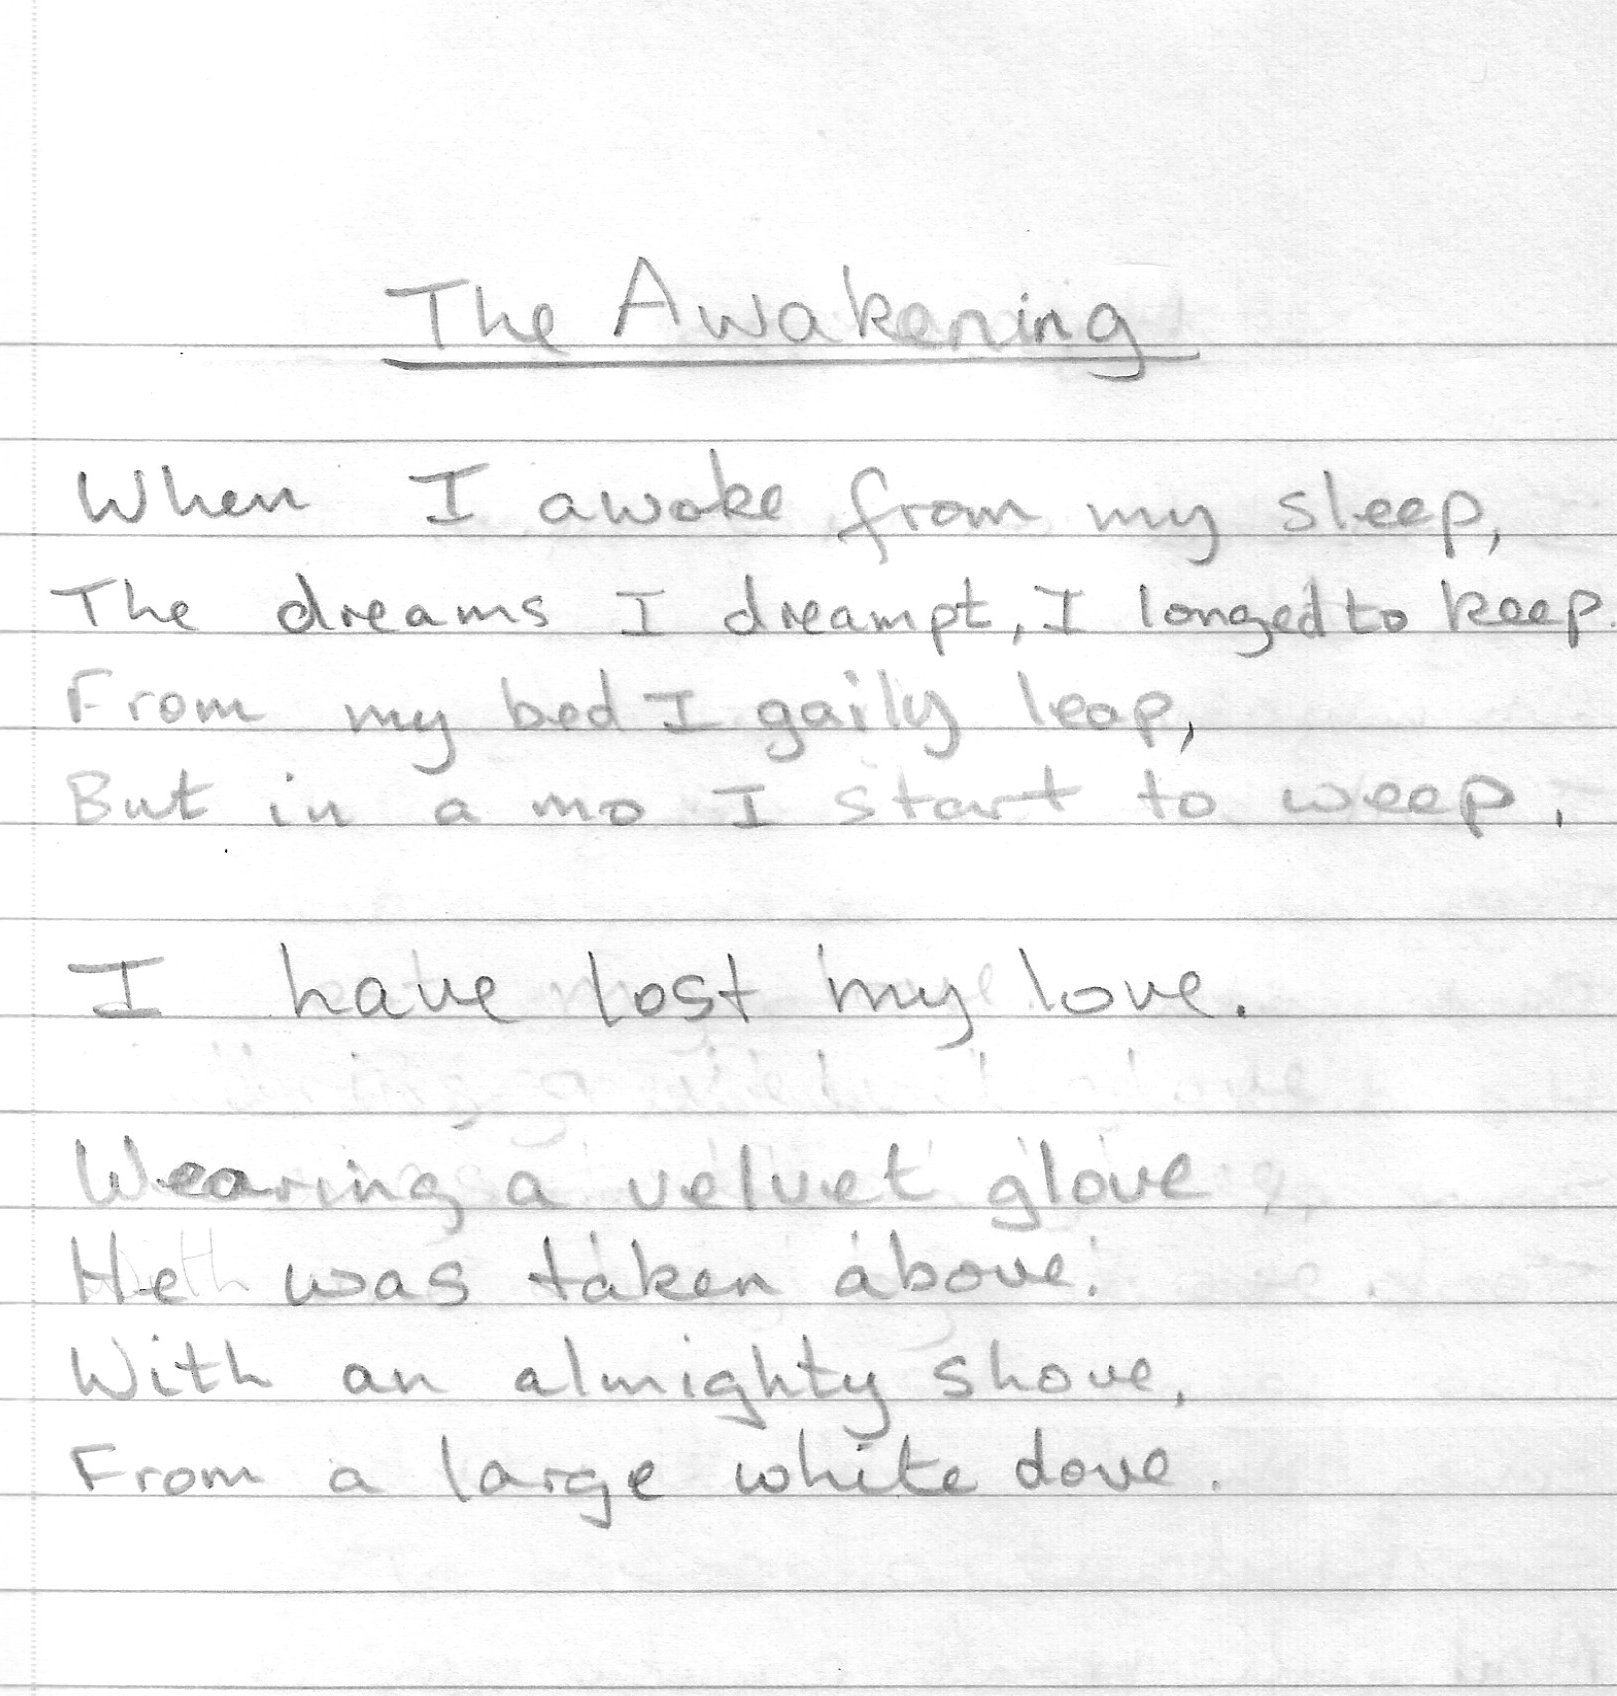 The Awakening
When I awoke from my sleep,
The dreams I dreampt, I longed to keep.
From my bed I gaily leap,
But in a mo I start to weep.
I have lost my love.
Wearing a velvet glove
He was taken above.
With an almighty shove,
From a large white dove.